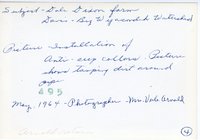 Subject - Dale Dixon farm
Davis - Big Wyacondah Watershed
Picture - Installation of
Anti-seep collars. Picture
shows tamping dirt around
pipe
495
May, 1964 - Photographer - Mrs. Dale Arnold
4